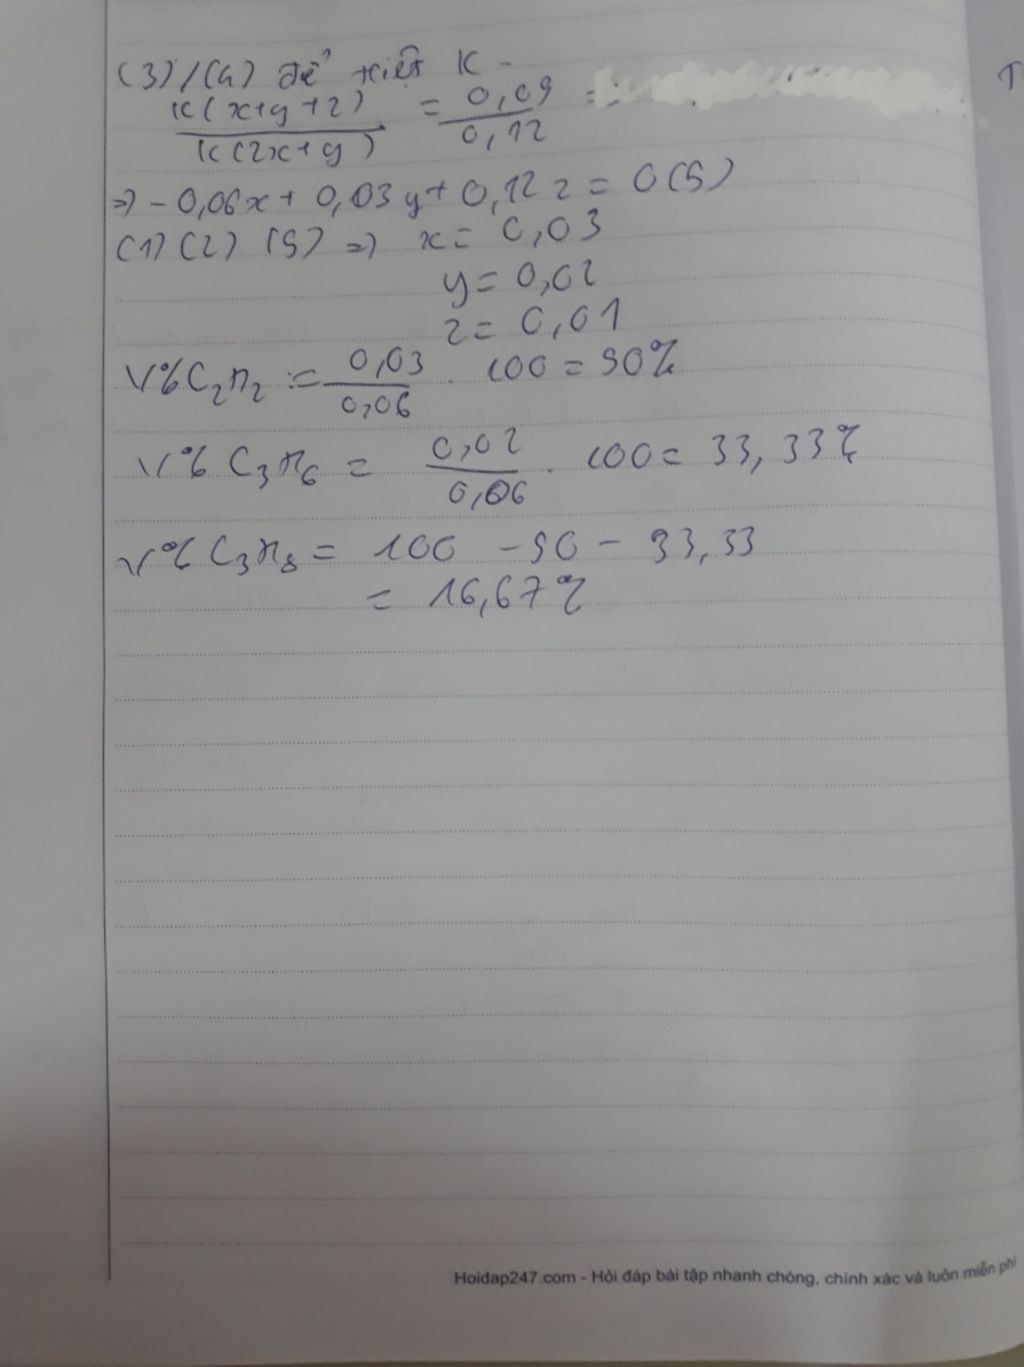 (3)/(4) để triệt K
K(x+y+z) / K(2x+y) = 0,09 / 0,12 =
=> -0,06x + 0,03y + 0,12z = 0 (5)
(1) (2) (5) => x = 0,03
y = 0,02
z = 0,01
V% C2H2 = 0,03 / 0,06 . 100 = 50%
V% C3H6 = 0,02 / 0,06 . 100 = 33,33%
V% C3H8 = 100 - 50 - 33,33
= 16,67%
Hoidap247.com - Hỏi đáp bài tập nhanh chóng, chính xác và luôn miễn phí